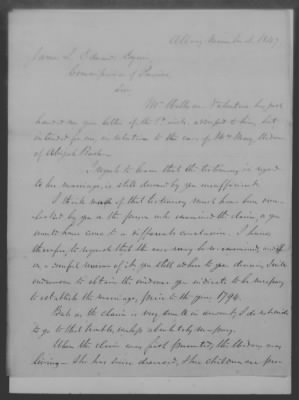 Albany November 2. 1847
James L. Edwards Esquire
Commissioner of Pensions
Sir
Mr William Valentine has just
handed me your letter of the 1st inst. addressed to him, but
intended for me, in relation to the case of Mrs Mary widow
of Abijah
I regret to learn that the testimony in regard
to her marriage, is still deemed by you insufficient.
I think much of that testimony must have been over-
looked by you or the person who examined the claim, or you
would have come to a different conclusion. I have,
therefore, to request that the case may be re-examined, and if
on a careful review of it you still adhere to your decision, I will
endeavor to obtain the evidence you indicate to be necessary
to establish the marriage, prior to the year 1794.
But as the claim is very small in amount, I do not wish
to go to that trouble, unless absolutely necessary.
When the claim was first presented, the widow was
living. She has since deceased, & her children are